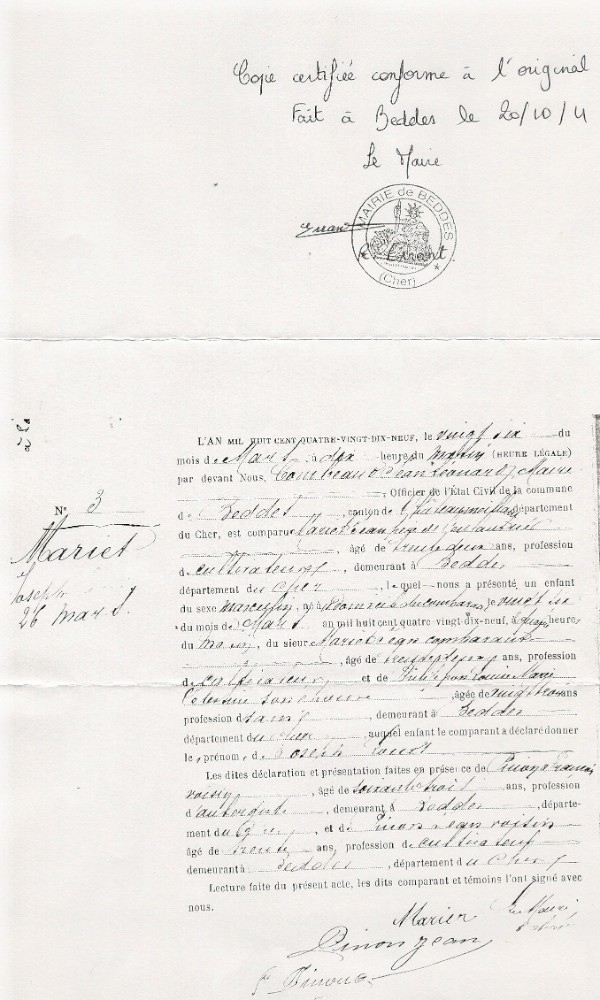 Copie certifiée conforme à l'original
Fait à Beddes le 20/10/11
Le Maire
MAIRIE de BEDDES
(Cher)
L'AN MIL HUIT CENT QUATRE-VINGT-DIX-NEUF, le vingt six du
mois de Mars à dix heure du matin (HEURE LÉGALE)
par devant Nous, Jean Maire
, Officier de l'État Civil de la commune
d Beddes, canton de Chateaumeillant département
du Cher, est comparu Mariet Jean
, âgé de trente deux ans, profession
de cultivateur, demeurant à Beddes
département du Cher, lequel nous a présenté un enfant
du sexe masculin, né à , le vingt six
du mois de Mars an mil huit cent quatre-vingt-dix-neuf, à heures
du matin, du sieur Mariet Jean comparant
, âgé de ans, profession
de cultivateur, et de Marie
son épouse, âgée de vingt trois ans
profession sans, demeurant à Beddes
département du Cher, auquel enfant le comparant a déclaré donner
le prénom de Joseph
Les dites déclaration et présentation faites en présence de Pinon François
voisin, âgé de soixante trois ans, profession
d'aubergiste, demeurant à Beddes, départe-
ment du Cher, et de Pinon Jean voisin
âgé de trente ans, profession de cultivateur
demeurant à Beddes, département du Cher
Lecture faite du présent acte, les dits comparant et témoins l'ont signé avec
nous.
N° 3
Mariet
Joseph
26 mars
Mariet
Le Maire,
Pinon Jean
Pinon